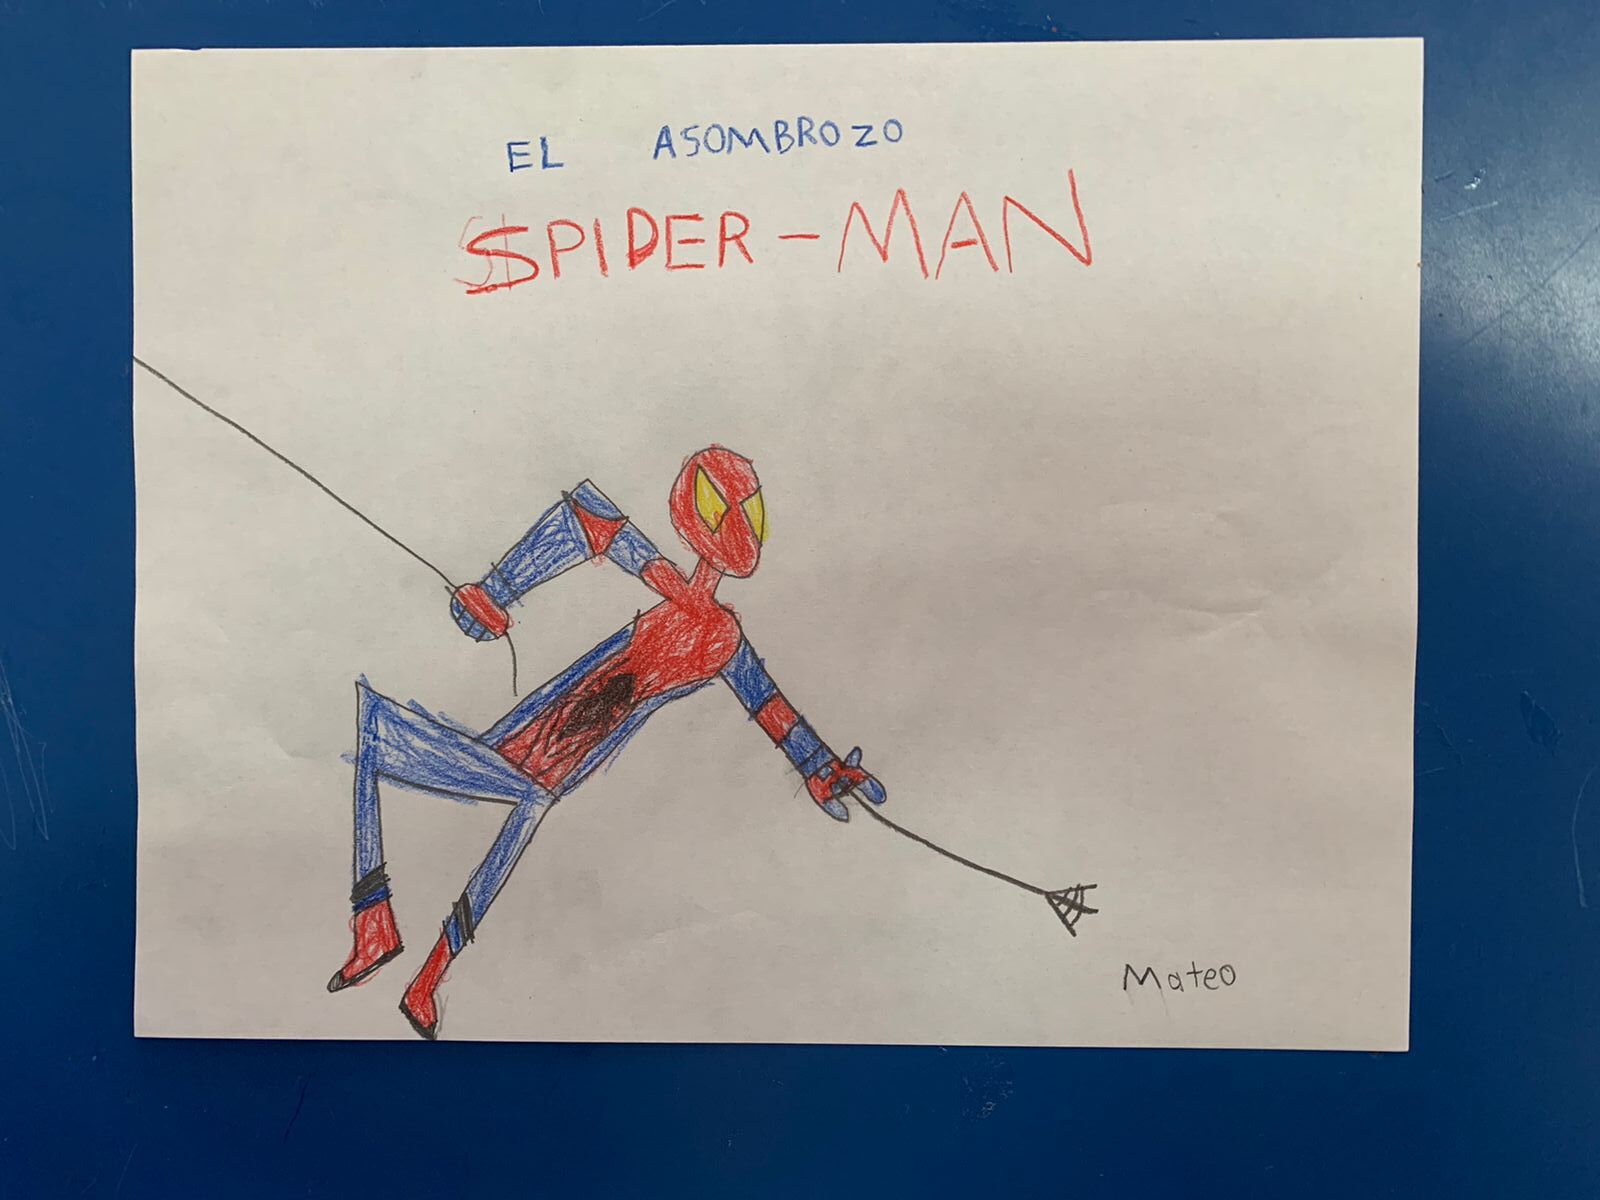 EL ASOMBROZO
SPIDER-MAN
Mateo